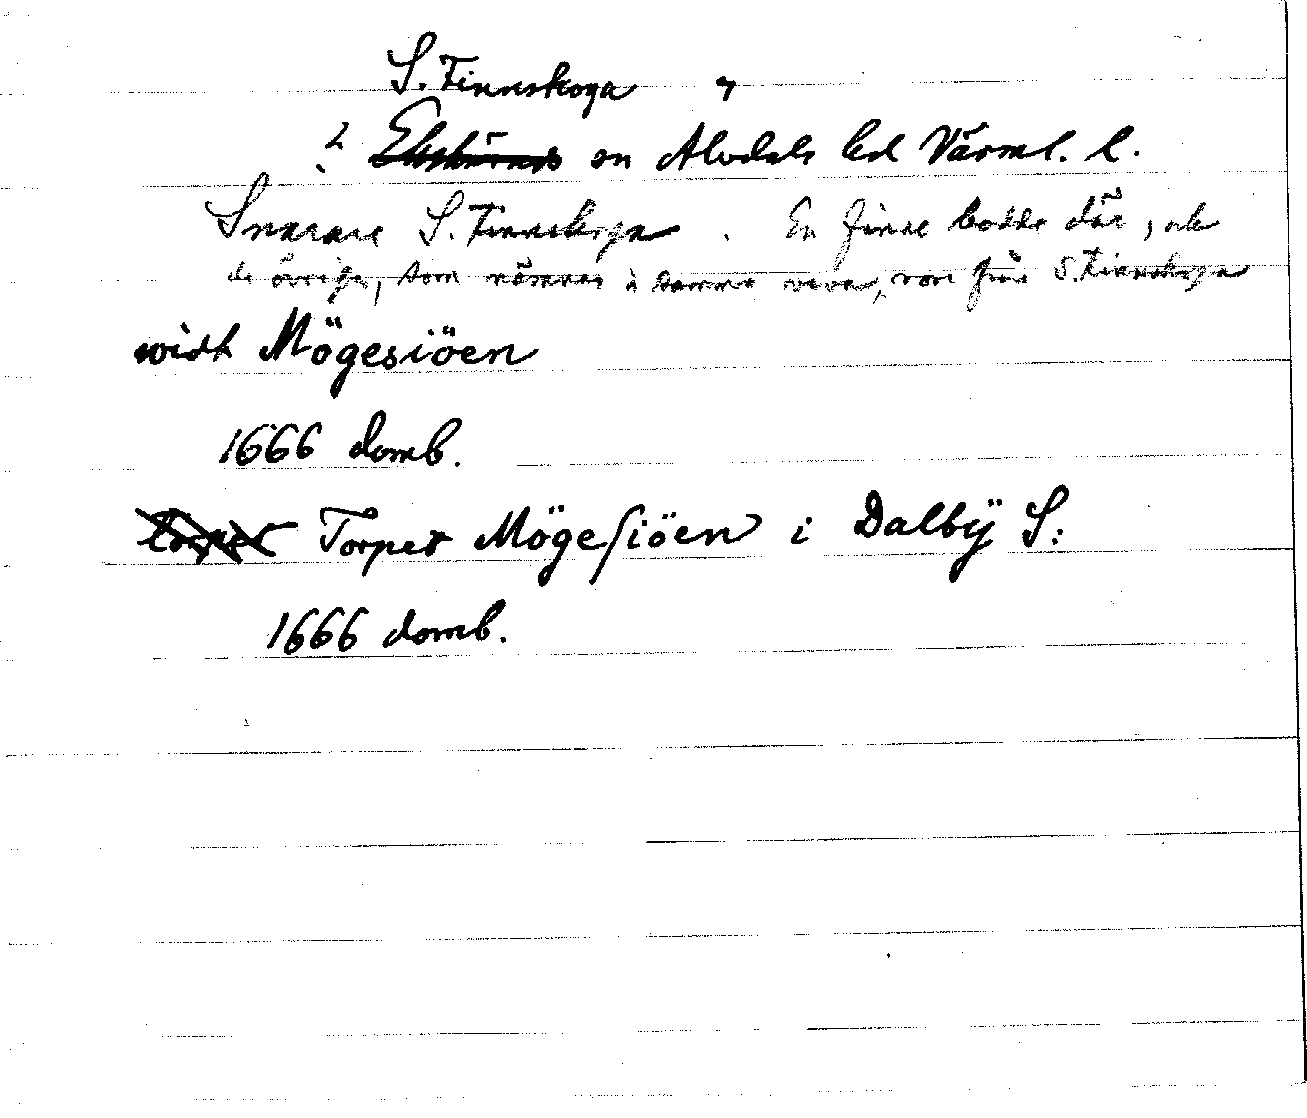 S. Finnskoga
? Ekshärads sn Älvdals hd Värml. l.
Snarare S. Finnskoga. En finne bodde där, och
de övriga, som nämnas å samma vara, voro från S. Finnskoga
widt Mögesiöen
1666 domb.
torpet Torpet Mögesiöen i Dalbÿ S:
1666 domb.